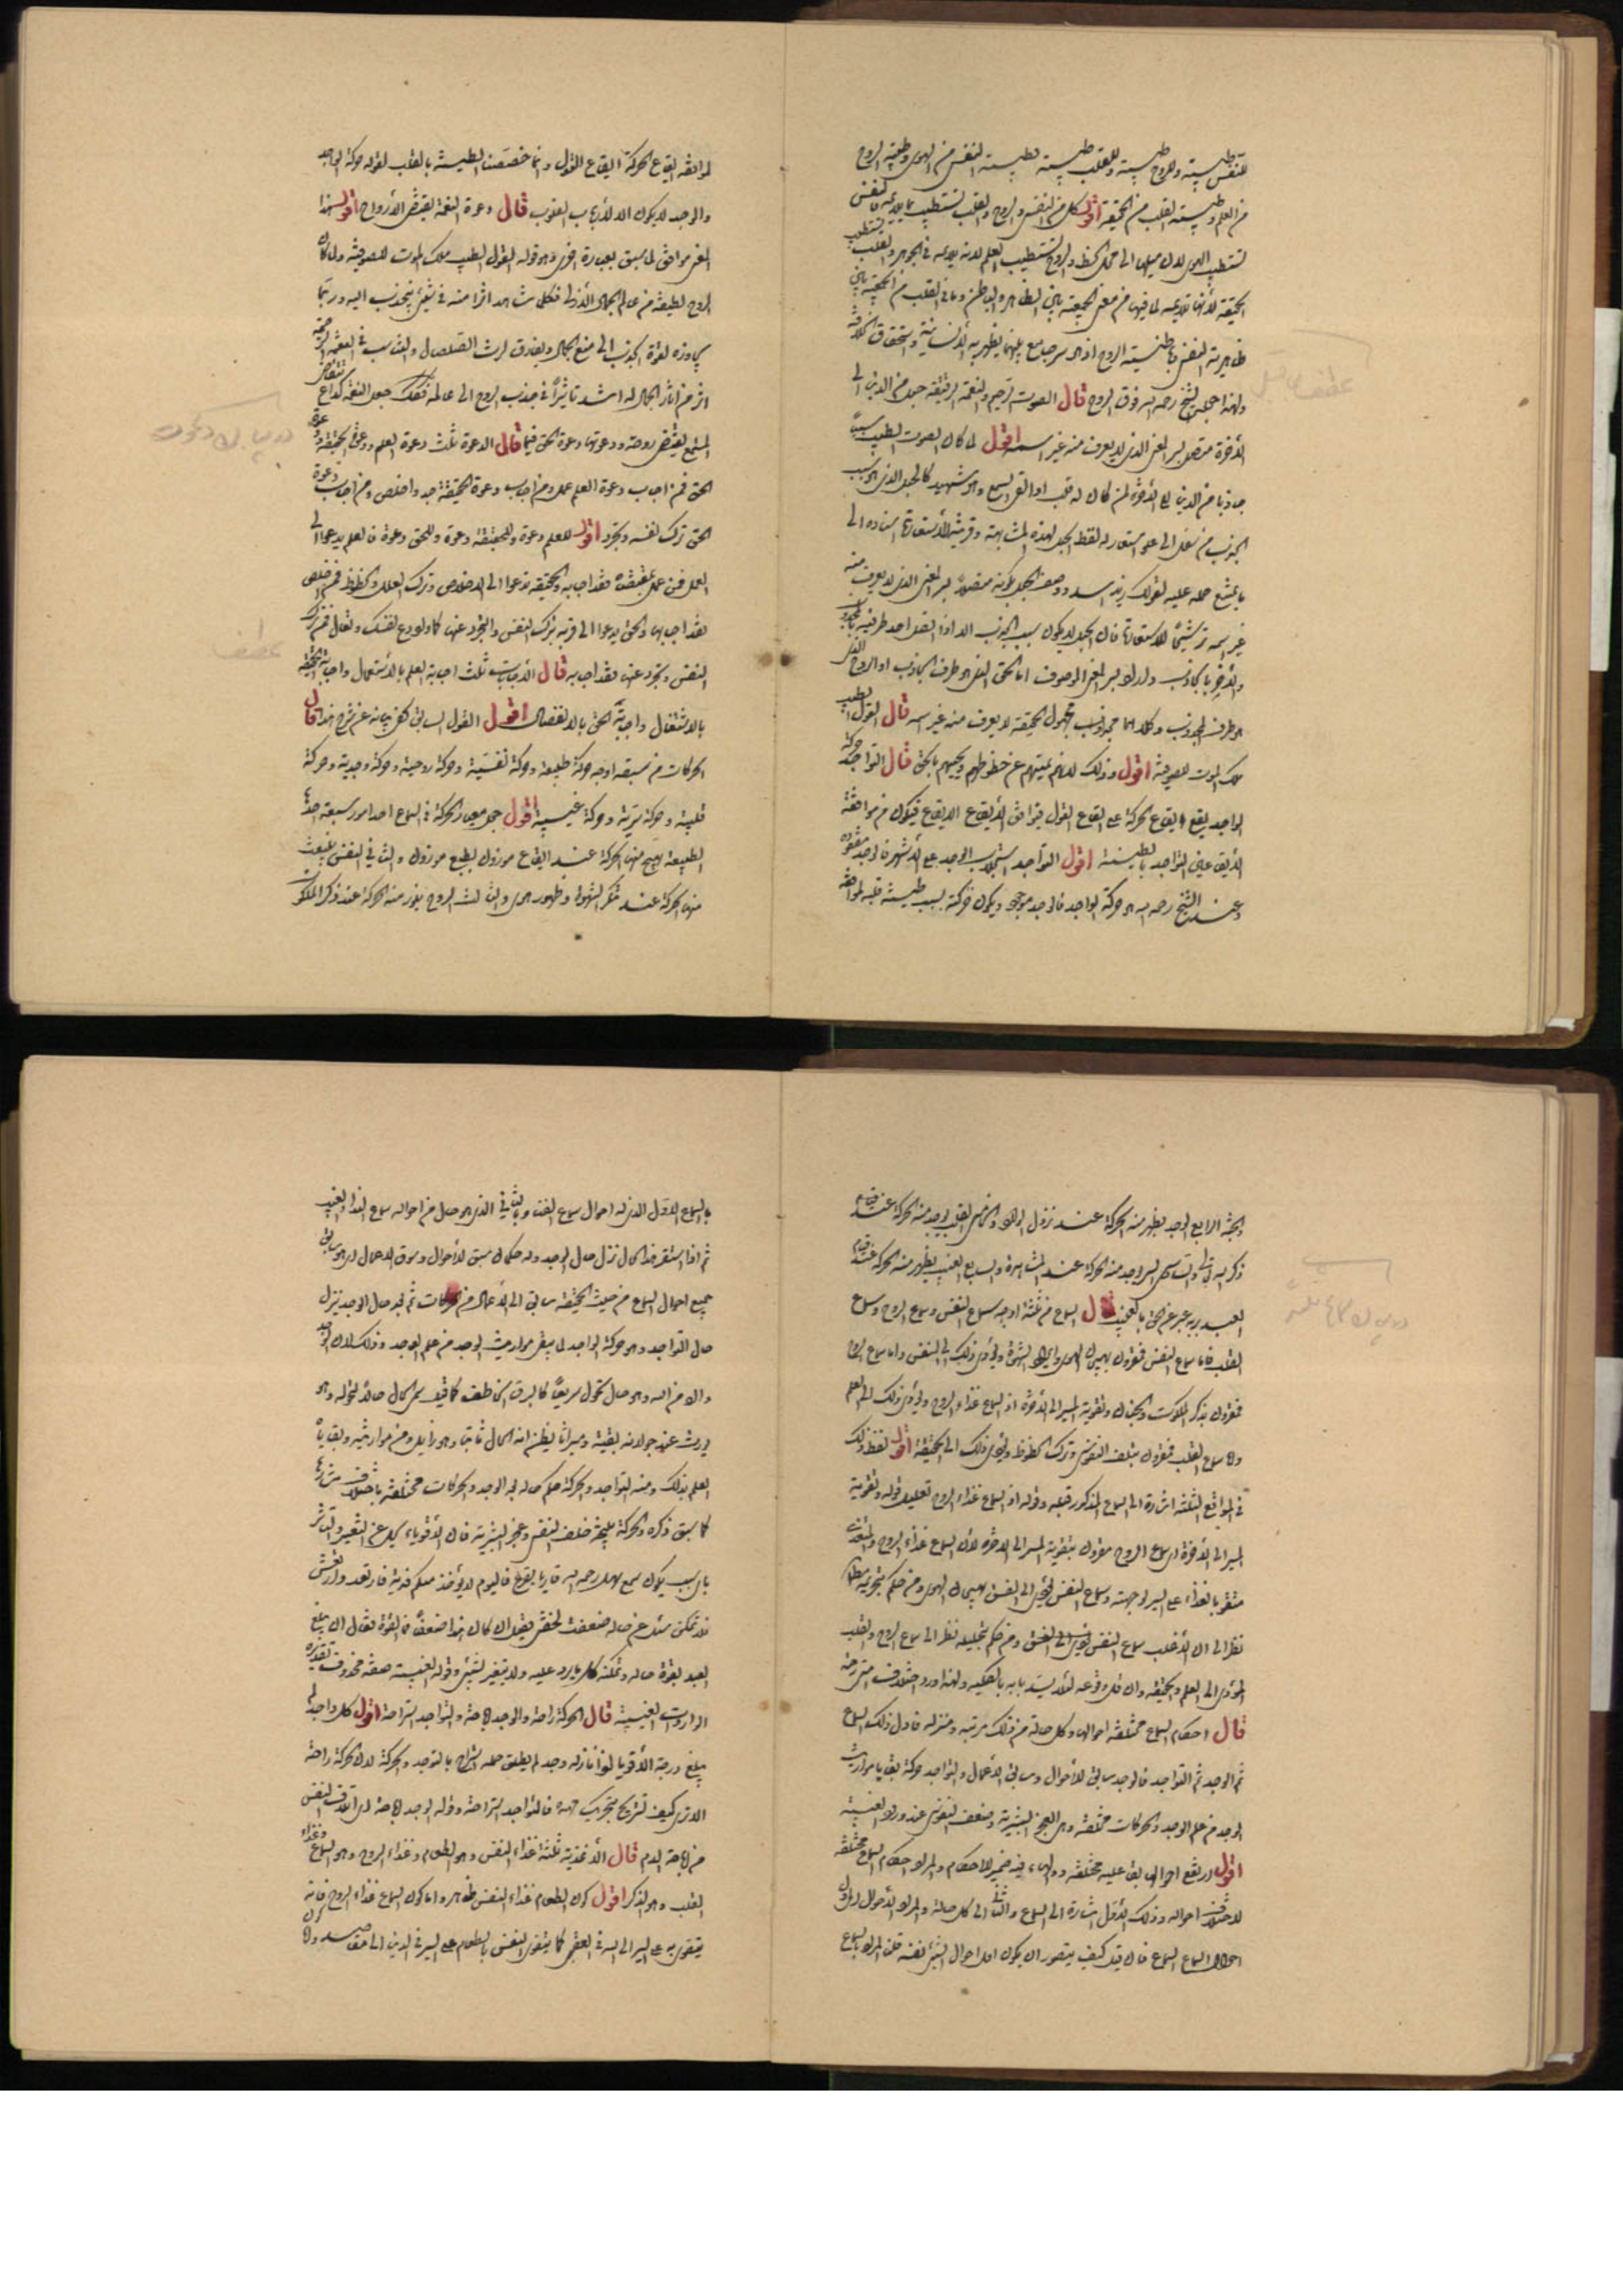 للنفس طيبته وللروح طيبته وللقلب طيبته فطيبته النفس من الهوى وطيبته الروح
من العلم وطيبته القلب من الحقيقة اقول كل من النفس والروح والقلب تستطيب بما يلايمه فالنفس
تستطيب الهوى لان ميلها الى محل الحظ والروح تستطيب العلم لانه يلايمه في الجوهر والقلب يستطيب
الحقيقة لأنها تلايمه لما فيها من معنى الجمعية بين الظاهر والباطن وما في القلب من الجمعية بين
ظاهرية النفس وباطنية الروح اذ هو سر جامع بينهما يظهر به الأنسانية واستحقاق الخلافة
ولهذا جعله الشيخ رحمه الله فوق الروح قال الصوت الرخيم والنغمة الرقيقة حبل من الدنيا الى
الأخرة متصل بسر المعنى الذي لا يعرف منه غير اسمه اقول لما كان الصوت الطيب سببا
جاذبا من الدنيا الى الأخرة لمن كان له قلب او القى السمع وهو شهيد كالحبل الذي هو سبب
الجذب من سفل الى علو استعار له لفظ الحبل لهذه المشابهة وقرينة الأستعارة اسناده الى
ما يمتنع حمله عليه كقولك زيد اسد ووصف الحبل بكونه متصلا بسر المعنى الذي لا يعرف منه
غير اسمه ترشيحا للاستعارة فان الحبل لا يكون سبب الجذب الا اذا اتصل احد طرفيه بالمجذوب
والأخر بالجاذب واراد بسر المعنى الموصوف اما الحق الذي هو طرف الجاذب او الروح الذي
هو طرف المجذوب وكلاهما مجهول الحقيقة لا يعرف منه غير اسمه قال القول الطيب
ملك الموت للصوفية اقول وذلك لانه يميتهم عن حظوظهم ويحييهم بالحق قال التواجد حركة
الواجد يقع ايقاع الحركة على ايقاع القول فيوافق الأيقاع الايقاع فيكون من موافقة
الأيقاعين التواجد بالطيبة اقول التواجد استجلاب الوجد على الأشهر فالوجد مفقود
وعند الشيخ رحمه الله هو حركة الواجد فالوجد موجود ويكون حركته بسبب طيبته قلبه لموافقة
لموافقة ايقاع الحركة ايقاع القول وانما خصصنا الطيبة بالقلب لقوله حركة الواجد
والوجد لا يكون الا لأرباب القلوب قال دعوة النغمة يقتضى الأرواح اقول هذا
المعنى موافق لما سبق بعبارة اخرى وهو قوله القول الطيب ملك الموت للصوفية ولما كان
الروح لطيفة من عالم الجمال الأزلى فكلما شاهد اثرا منه في شيء ينجذب اليه وربما
يجاوزه لقوة الجذب الى منبع الجمال ويفارق ارث الصلصال والتناسب في النغمة الرخيمة
اثر من اثار الجمال له اشد تأثيرا في جذب الروح الى عالمه فلذلك جعل النغمة كداع
المستمع يقتضى روحه ودعوتها دعوة الحق فيها قال الدعوة ثلث دعوة العلم ودعوة الحقيقة ودعوة
الحق فمن اجاب دعوة العلم عمل ومن اجاب دعوة الحقيقة جد واخلص ومن اجاب دعوة
الحق ترك نفسه وتجرد اقول للعلم دعوة وللحقيقة دعوة وللحق دعوة فالعلم يدعوا الى
العمل فمن عمل بمقتضاه فقد اجابه والحقيقة تدعوا الى الاخلاص وترك العلل والحظوظ فمن اخلص
فقد اجابها والحق يدعوا الى قربه بترك النفس والتجرد عنها كما ورد دع نفسك وتعال فمن ترك
النفس وتجرد عنها فقد اجابه قال الأجابة ثلث اجابة العلم بالأستعمال واجابة الحقيقة
بالاشتغال واجابة الحق بالانفصال اقول القول السابق كفى بيانه عن شرح هذا قال
الحركات من سبعة اوجه حركة طبيعية وحركة نفسية وحركة روحية وحركة وجدية وحركة
قلبية وحركة سرية وحركة غيبية اقول جعل معيار الحركة في السماع احد امور سبعة احدها
الطبيعة يهيج منها الحركة عند ايقاع موزون بطبع موزون والثاني النفس ينبعث
منها الحركة عند تذكر الشهوة وظهور الهوى والثالث الروح يفوز منه الحركة عند ذكر الملكوت
والجنة الرابع الوجد يظهر منه الحركة عند نزول الوارد والخامس القلب يوجد منه الحركة عند
ذكر الله تعالى والسادس السر يوجد منه الحركة عند المشاهدة والسابع الغيب يظهر منه الحركة عند
العبد بربه عبر عن الحق بالغيب قال السماع من ثلثة اوجه سماع النفس وسماع الروح وسماع
القلب فاما سماع النفس فمقرون بهيجان الهوى وايراد الشهوة ويؤدى ذلك الى النفس واما سماع الروح
فمقرون بذكر الملكوت والجنان وتقوية المسير الى الأخرة اذ السماع غذاء الروح ويؤدى ذلك الى العلم
واما سماع القلب فمقرون بتلف النفوس وترك الحظوظ ويؤدى ذلك الى الحقيقة اقول لفظ ذلك
في المواقع الثلثة اشارة الى السماع المذكور قبله وقوله اذ السماع غذاء الروح تعليل قوله وتقوية
المسير الى الأخرة اى سماع الروح مقرون بتقوية المسير الى الاخرة لأن السماع غذاء الروح والمتغذى
متقو بالغذاء على السير لوجهته وسماع النفس يؤدى الى الفسق بهيجان الهوى ومن حكم بتحريمه مطلقا
نظر الى ان الأغلب سماع النفس المؤدى الى الفسق ومن حكم بتحليله نظر الى سماع الروح والقلب
المؤدى الى العلم والحقيقة وان قل وقوعه لئلا يسد بابه بالكلية ولهذا ورد اختلاف
قال احكام السماع مختلفة احوالها وكل حالة من ذلك مرتبة ومنزلة فاول ذلك السماع
ثم الوجد ثم التواجد فالوجد سابق الأحوال وسابق الأعمال والتواجد حركة بقايا مواريث
الوجد من علم الوجد والحركات مختلفة وهى العجز البشرية وضعف النفوس عند ورود الغيبية
اقول ارتفع احوالها بفاعلية مختلفة والهاء فيه ضمير الاحكام والمراد احكام السماع مختلفة
لاختلاف احواله وذلك الأول اشارة الى السماع والثاني الى كل حالة والمراد الأحوال اى اول
احوال السماع السماع فان قيل كيف يتصور ان يكون اول احوال الشيء نفسه قلنا المراد بالسماع
بالسماع الاول الذي له احوال سماع الغناء وبالثاني الذي هو حال من احواله سماع النداء الغيبى
ثم اذا استقر هذا الحال نزل حال الوجد وله حكمان سبق الأحوال وسوق الاعمال اى هو سابق
جميع احوال السماع من حيث الحقيقة سابق الى الأعمال من الحركات ثم بعد حال الوجد ينزل
حال التواجد وهو حركة الواجد لما يبقى مواريث الوجد من علم الوجد وذلك لان الوجد
وارد من الله وهو حال تحول سريعا كالبرق الخاطف كما قيل سمى الحال حالا لتحوله وهو
يورث عند جولانه بقية وميراثا يظن انه الحال ثابتا وهو زايل ومن مواريثه وبقاياه
العلم بذلك ومنه التواجد والحركة حكم حاله بعد الوجد والحركات مختلفة باختلاف
كما سبق ذكره والحركة نتيجة ضعف النفس وعجز البشرية فان الأقوياء كل عن التغير والتأثر
بأى سبب يكون سمع سهل رحمه الله قاريا يقرأ فاليوم لا يؤخذ منكم فدية فارتعد وارتعش
فلما تمكن سئل عن حاله ضعفت لحقنى فقيل ان كان هذا ضعفا فما القوة فقال ان يبلغ
العبد بقوة حاله وتمكنه كل ما يرد عليه ولا يتغير لشيء وقوله الغيبية صفة محذوف تقديره
الواردات الغيبية قال الحركة راحة والوجد اباحة والتواجد استراحة اقول كل واجد لم
يبلغ درجة الأقويا لو انازله وجد لم يطلق حمله استراح بالتوجد والحركة لان الحركة راحة
الا ترى كيف تستريح بتحريك فالتواجد استراحة وقوله الوجد اباحة اى اتلاف النفس
من اباحة الدم قال الأغذية ثلثة غذاء النفس وهو الطعام وغذاء الروح وهو السماع وغذاء
القلب وهو الذكر اقول كون الطعام غذاء النفس ظاهر واما كون السماع غذاء الروح فانه
يتقوى به على السير الى الله في العقبى كما يتقوى النفس بالطعام على السير في الدنيا الى مقاصده وان